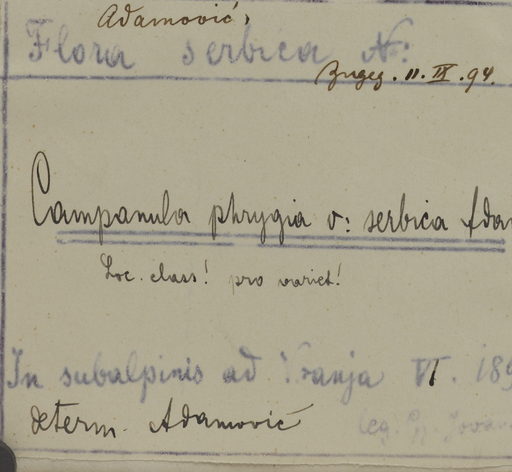 Adamović,
Flora serbica №:
11. IX. 94.
Campanula phrygia v: serbica Ada
Loc. class! pro variet!
In subalpinis ad Vranja VI. 189
determ. Adamović
leg.